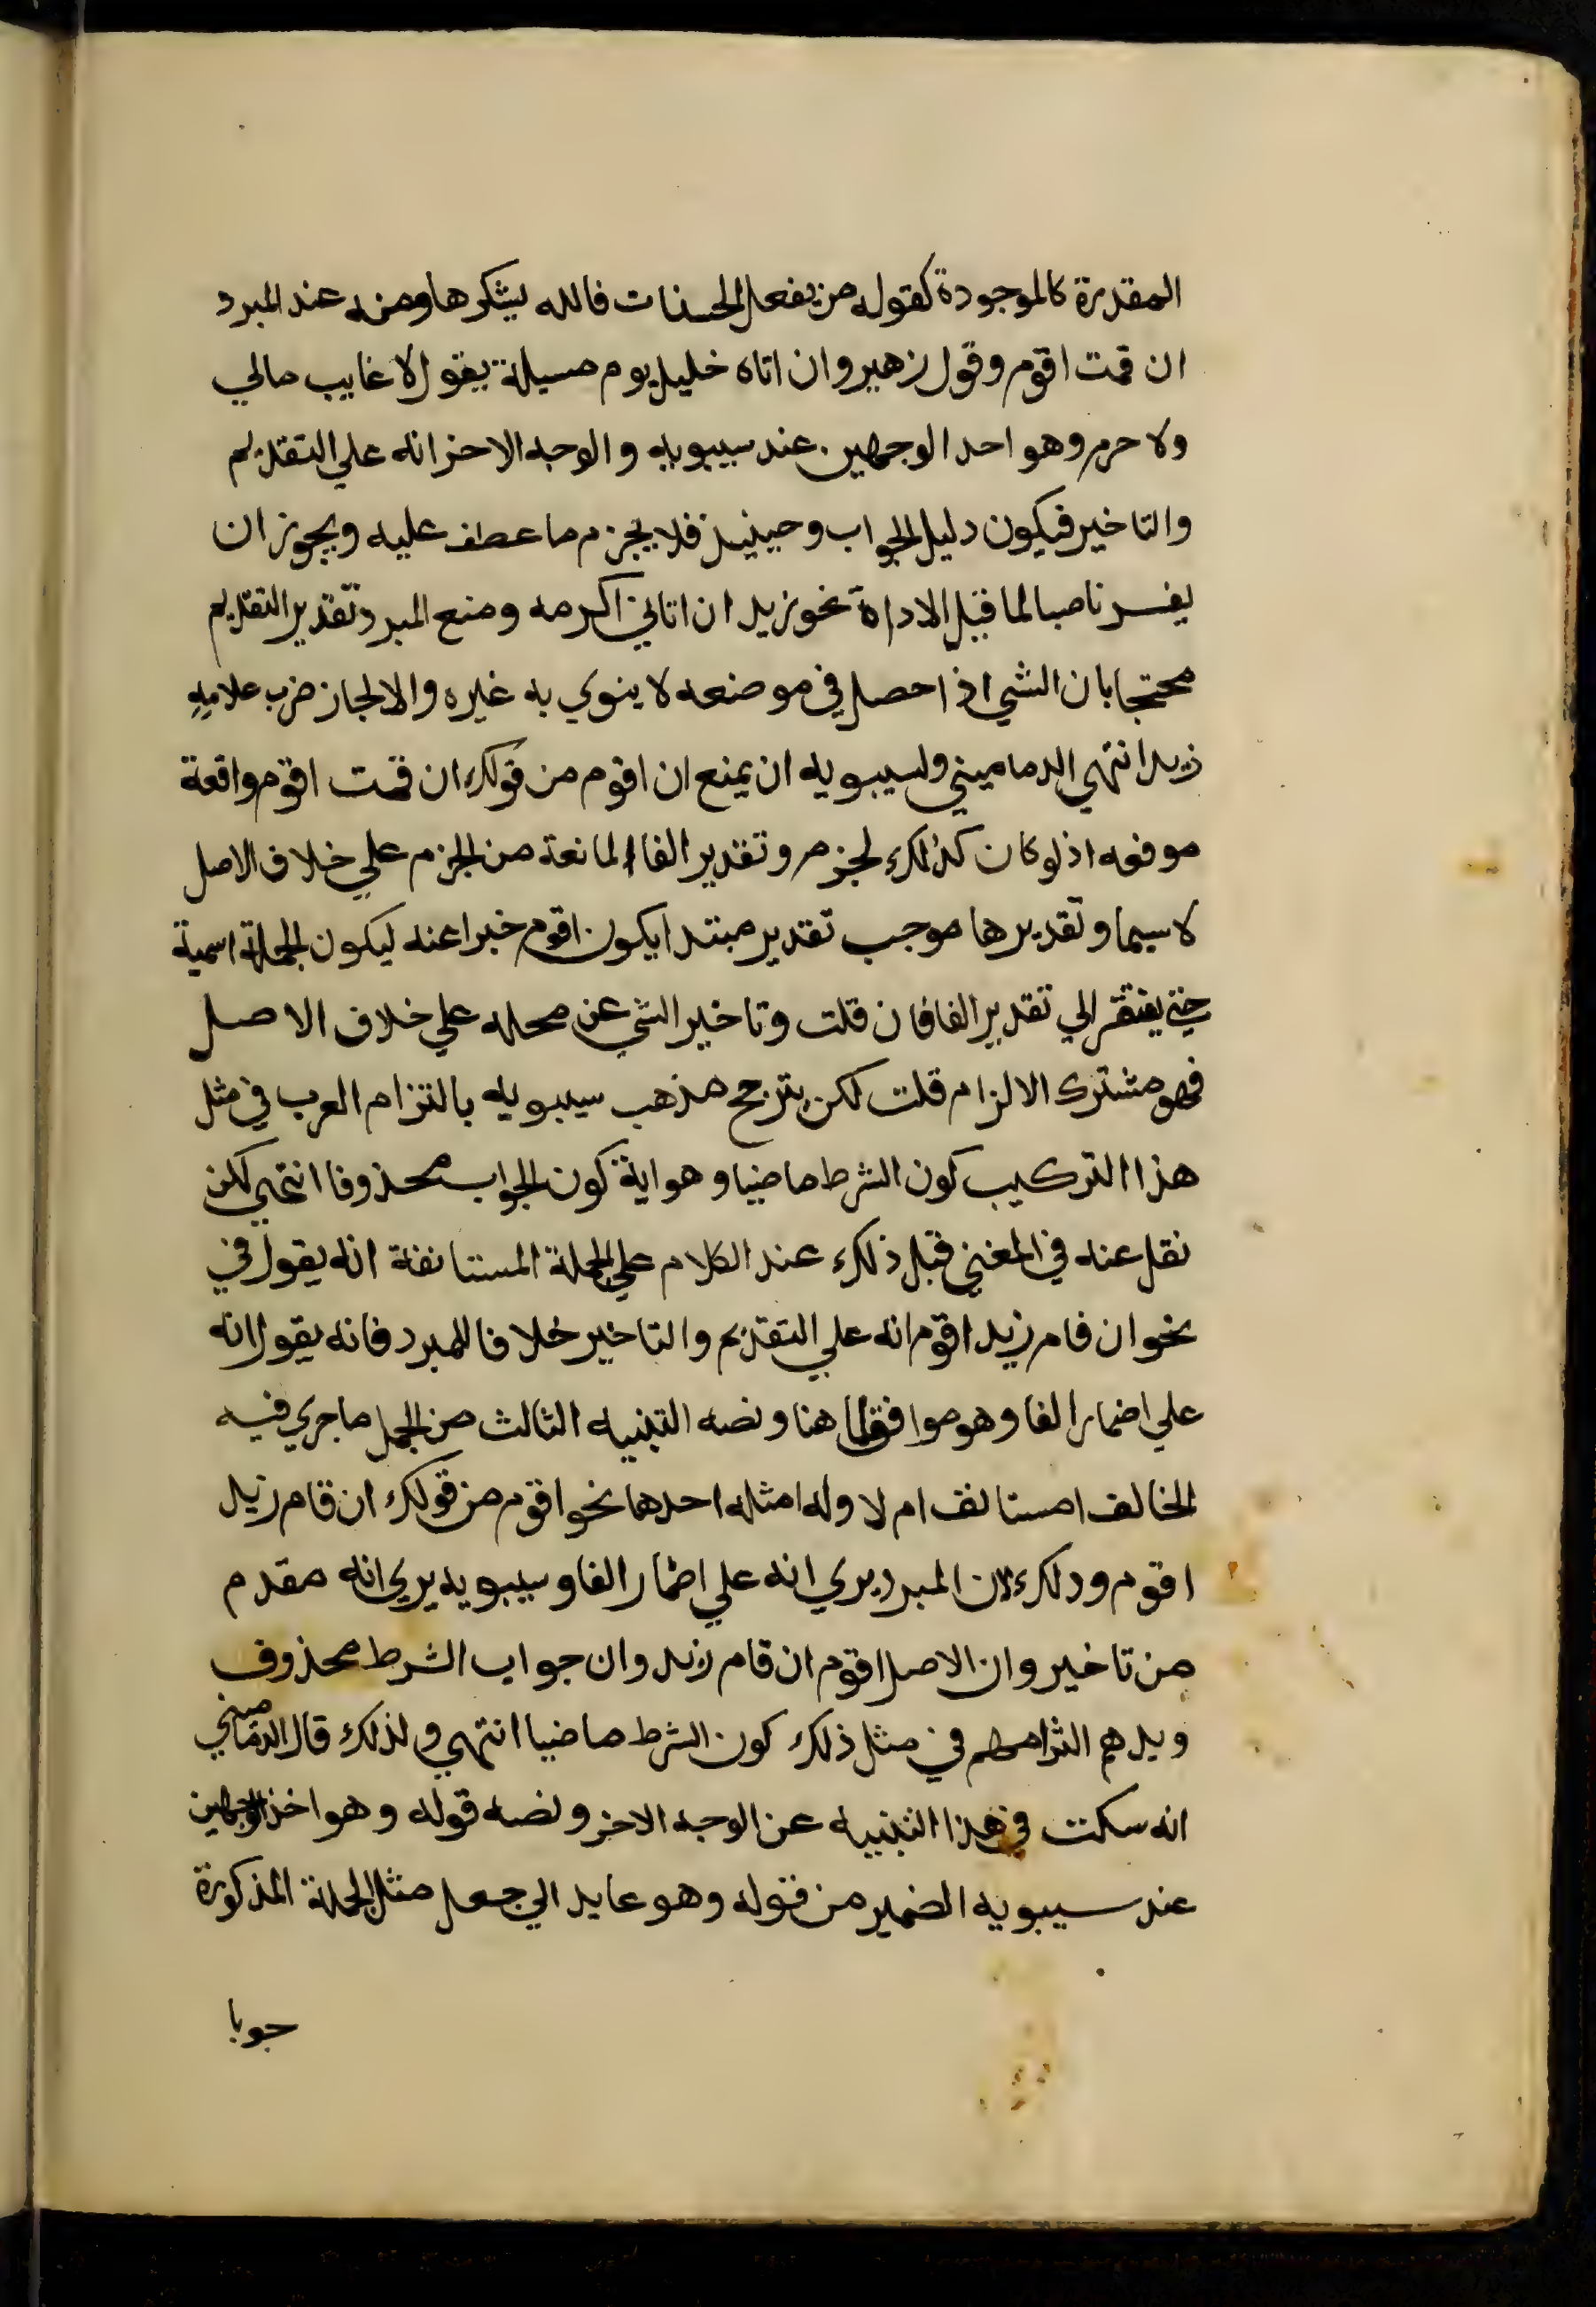 المقدرة كالموجودة كقوله من يفعل الحسنات فالله يشكرها ومنه عند المبرد
ان قمت اقوم وقول زهير وان اتاه خليل يوم مسيلة يقول لا غايب مالي
ولا حرم وهو احد الوجهين عند سيبويه والوجه الاخر انه علي التقديم
والتاخير فيكون دليل الجواب وحينيذ فلا يجزم ما عطف عليه ويجوز ان
يفسر ناصبا لما قبل الاداة نحو زيد ان اتاني اكرمه ومنع المبرد تقدير التقديم
محتجا بان الشي اذا حصل في موضعه لا ينوي به غيره والا لجاز ضرب غلاميه
زيد انتهي الدماميني ولسيبويه ان يمنع ان اقوم من قولك ان قمت اقوم واقعة
موقعه اذ لو كان كذلك لجزم وتقدير الفا المانعة من الجزم علي خلاف الاصل
لا سيما وتقديرها موجب تقدير مبتدا يكون اقوم خبرا عنه ليكون الجملة اسمية
حتي يفتقر الي تقدير الفا فان قلت وتاخير الشي عن محله علي خلاف الاصل
فهو مشترك الالزام قلت لكن يترجح مذهب سيبويه بالتزام العرب في مثل
هذا التركيب كون الشرط ماضيا وهو اية كون الجواب محذوفا انتهي لكن
نقل عنه في المغني قبل ذلك عند الكلام علي الجملة المستانفة انه يقول في
نحو ان قام زيد اقوم انه علي التقديم والتاخير خلافا للمبرد فانه يقول انه
علي اضمار الفا وهو موافق لما هنا ونصه التنبيه الثالث من الجمل ما جري فيه
الخالف امستانف ام لا وله امثله احدها نحو اقوم من قولك ان قام زيد
اقوم ودلك لان المبرد يري انه علي اضمار الفا وسيبويه يري انه مقدم
من تاخير وان الاصل اقوم ان قام زيد وان جواب الشرط محذوف
ويدهم الثرامهم في مثل ذلك كون الشرط ماضيا انتهي ولذلك قال الدماميني
انه سكت في هذا التنبيه عن الوجه الاخر ونصه قوله وهو اخذ الوجهين
عند سيبويه الضمير من قوله وهو عايد الي جعل مثل الجملة المذكورة
جوبا